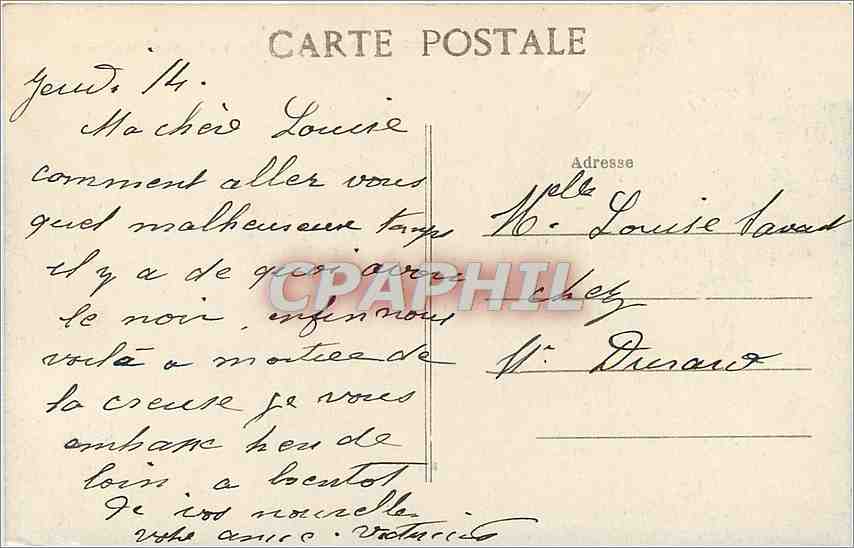 CARTE POSTALE
Jeudi 14.
Ma chère Louise
comment aller vous
quel malheureux temps
il y a de quoi avoir
le noir, enfin nous
voilà a moitiee de
la creuse je vous
embrasse bien de
loin a bientot
de vos nouvelles
votre amie.
Adresse
Melle Louise
chez
Mr Durand
CPAPHIL